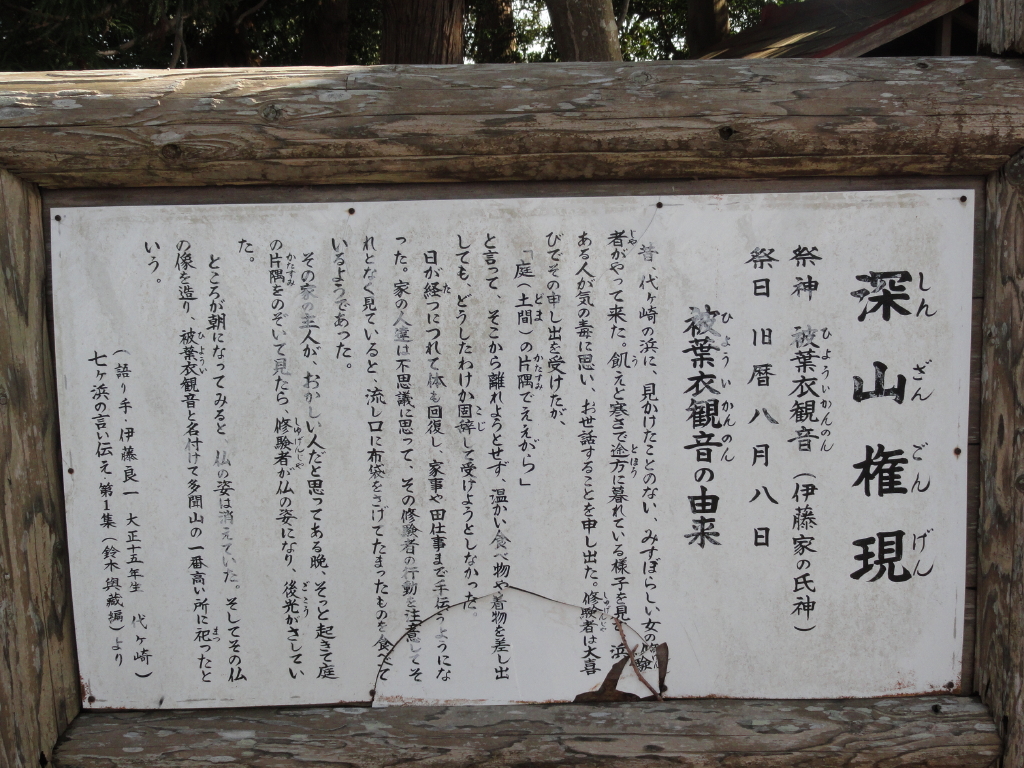 深山権現
祭神 被葉衣観音（伊藤家の氏神）
祭日 旧暦八月八日
被葉衣観音の由来
昔、代ヶ崎の浜に、見かけたことのない、みすぼらしい女の修験
者がやって来た。飢えと寒さで途方に暮れている様子を見た浜
ある人が気の毒に思い、お世話することを申し出た。修験者は大喜
びでその申し出を受けたが、
「庭（土間）の片隅でええがら」
と言って、そこから離れようとせず、温かい食べ物や着物を差し出
しても、どうしたわけか固辞して受けようとしなかった。
日が経つにつれて体も回復し、家事や田仕事まで手伝うようにな
った。家の人達は不思議に思って、その修験者の行動を注意してそ
れとなく見ていると、流し口に布袋をさげてたまったものを食べて
いるようであった。
その家の主人が、おかしい人だと思ってある晩、そっと起きて庭
の片隅をのぞいて見たら、修験者が仏の姿になり、後光がさしてい
た。
ところが朝になってみると、仏の姿は消えていた。そしてその仏
の像を造り、被葉衣観音と名付けて多聞山の一番高い所に祀ったと
いう。
（語り手・伊藤良一 大正十五年生 代ヶ崎）
七ヶ浜の言い伝え・第1集（鈴木與蔵編）より